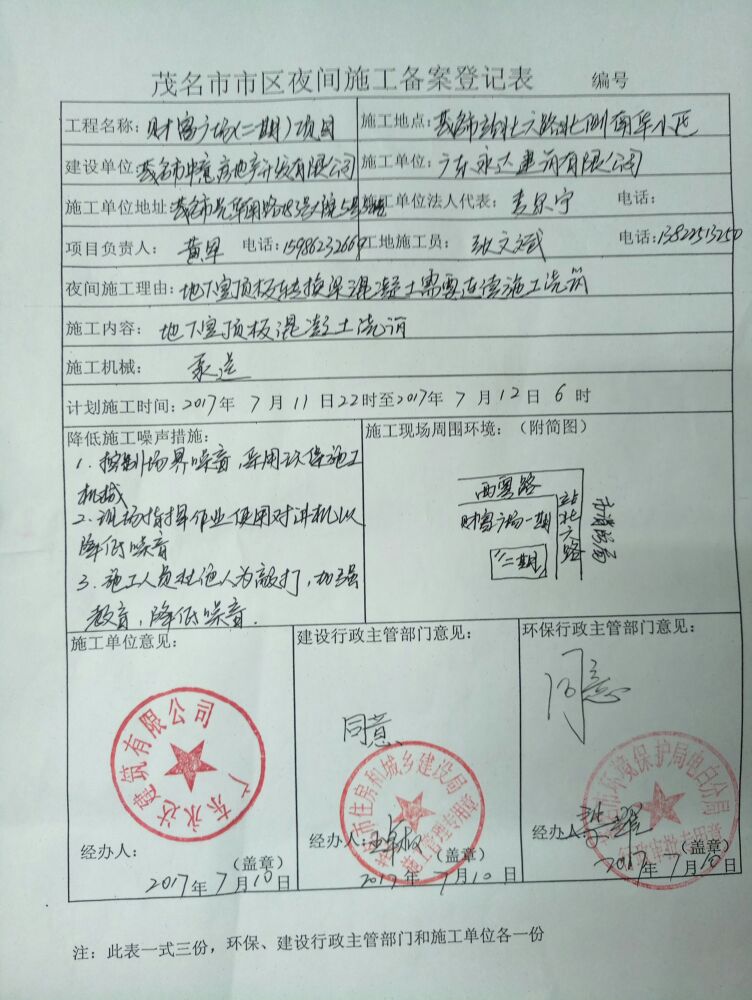 茂名市市区夜间施工备案登记表 编号
工程名称: 财富广场(二期)项目 施工地点: 茂名市站北六路北侧南华小区
建设单位: 茂名市中意房地产开发有限公司 施工单位: 广东永达建筑有限公司
施工单位地址: 茂名市光华南路 施工单位法人代表: 电话:
项目负责人: 黄早 电话:15986232669 工地施工员: 张文斌 电话:13822513250
夜间施工理由: 地下室顶板转换梁混凝土需要连续施工浇筑
施工内容: 地下室顶板混凝土浇筑
施工机械: 泵送
计划施工时间: 2017年 7月 11日22时至2017年 7月12日 6时
降低施工噪声措施:
1. 控制场界噪音,采用环保施工
机械
2. 现场指挥作业使用对讲机以
降低噪音
3. 施工人员杜绝人为敲打,加强
教育,降低噪音.
施工现场周围环境:(附简图)
西粤路
财富广场一期
二期
站北六路
市消防局
施工单位意见:
广东永达建筑有限公司
经办人:
(盖章)
2017年7月10日
建设行政主管部门意见:
同意
茂名市住房和城乡建设局
经办人:
(盖章)
2017年7月10日
环保行政主管部门意见:
同意
茂名市环境保护局电白分局
行政审批专用章
经办人:
(盖章)
2017年7月10日
注:此表一式三份,环保、建设行政主管部门和施工单位各一份